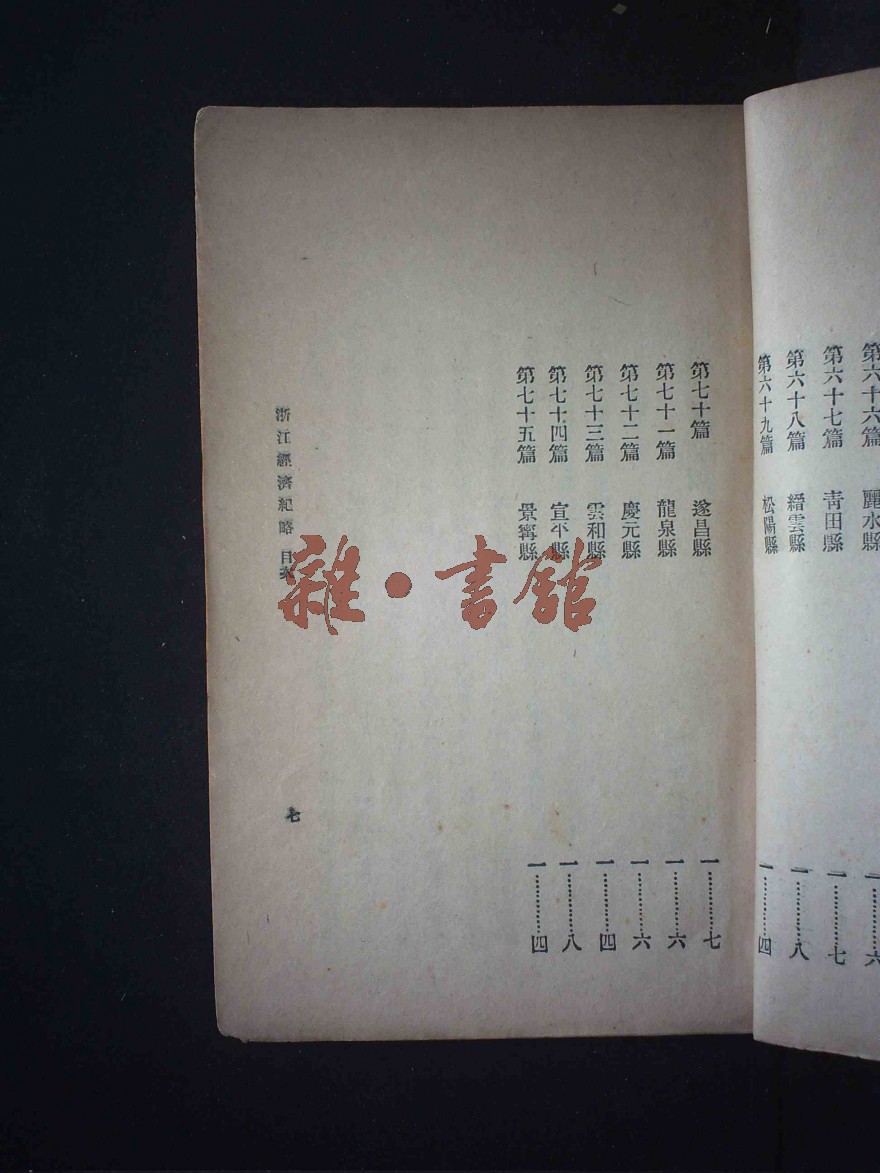 第六十六篇 麗水縣 一…………六
第六十七篇 青田縣 一…………七
第六十八篇 縉雲縣 一…………八
第六十九篇 松陽縣 一…………四
第七十篇 遂昌縣 一…………七
第七十一篇 龍泉縣 一…………六
第七十二篇 慶元縣 一…………六
第七十三篇 雲和縣 一…………四
第七十四篇 宣平縣 一…………八
第七十五篇 景寧縣 一…………四
浙江經濟紀略 目次
七
雜·書館